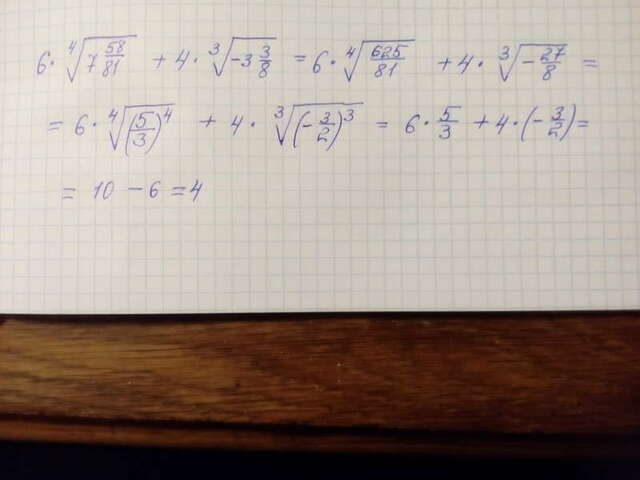 6 · ∜(7 58/81) + 4 · ∛(-3 3/8) = 6 · ∜(625/81) + 4 · ∛(-27/8) =
= 6 · ∜((5/3)^4) + 4 · ∛((-3/2)^3) = 6 · 5/3 + 4 · (-3/2) =
= 10 - 6 = 4